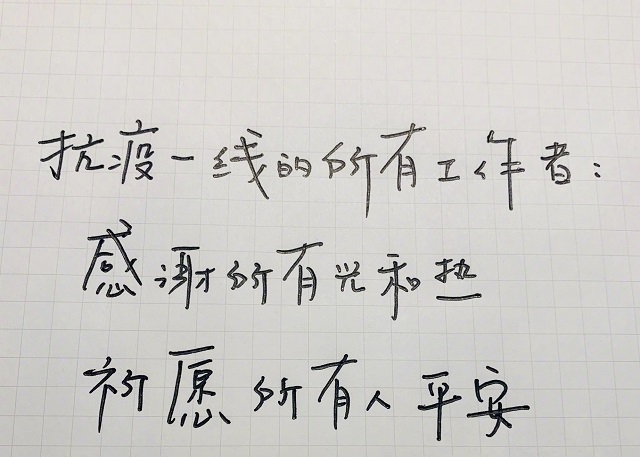 抗疫一线的所有工作者:
感谢所有光和热
祈愿所有人平安